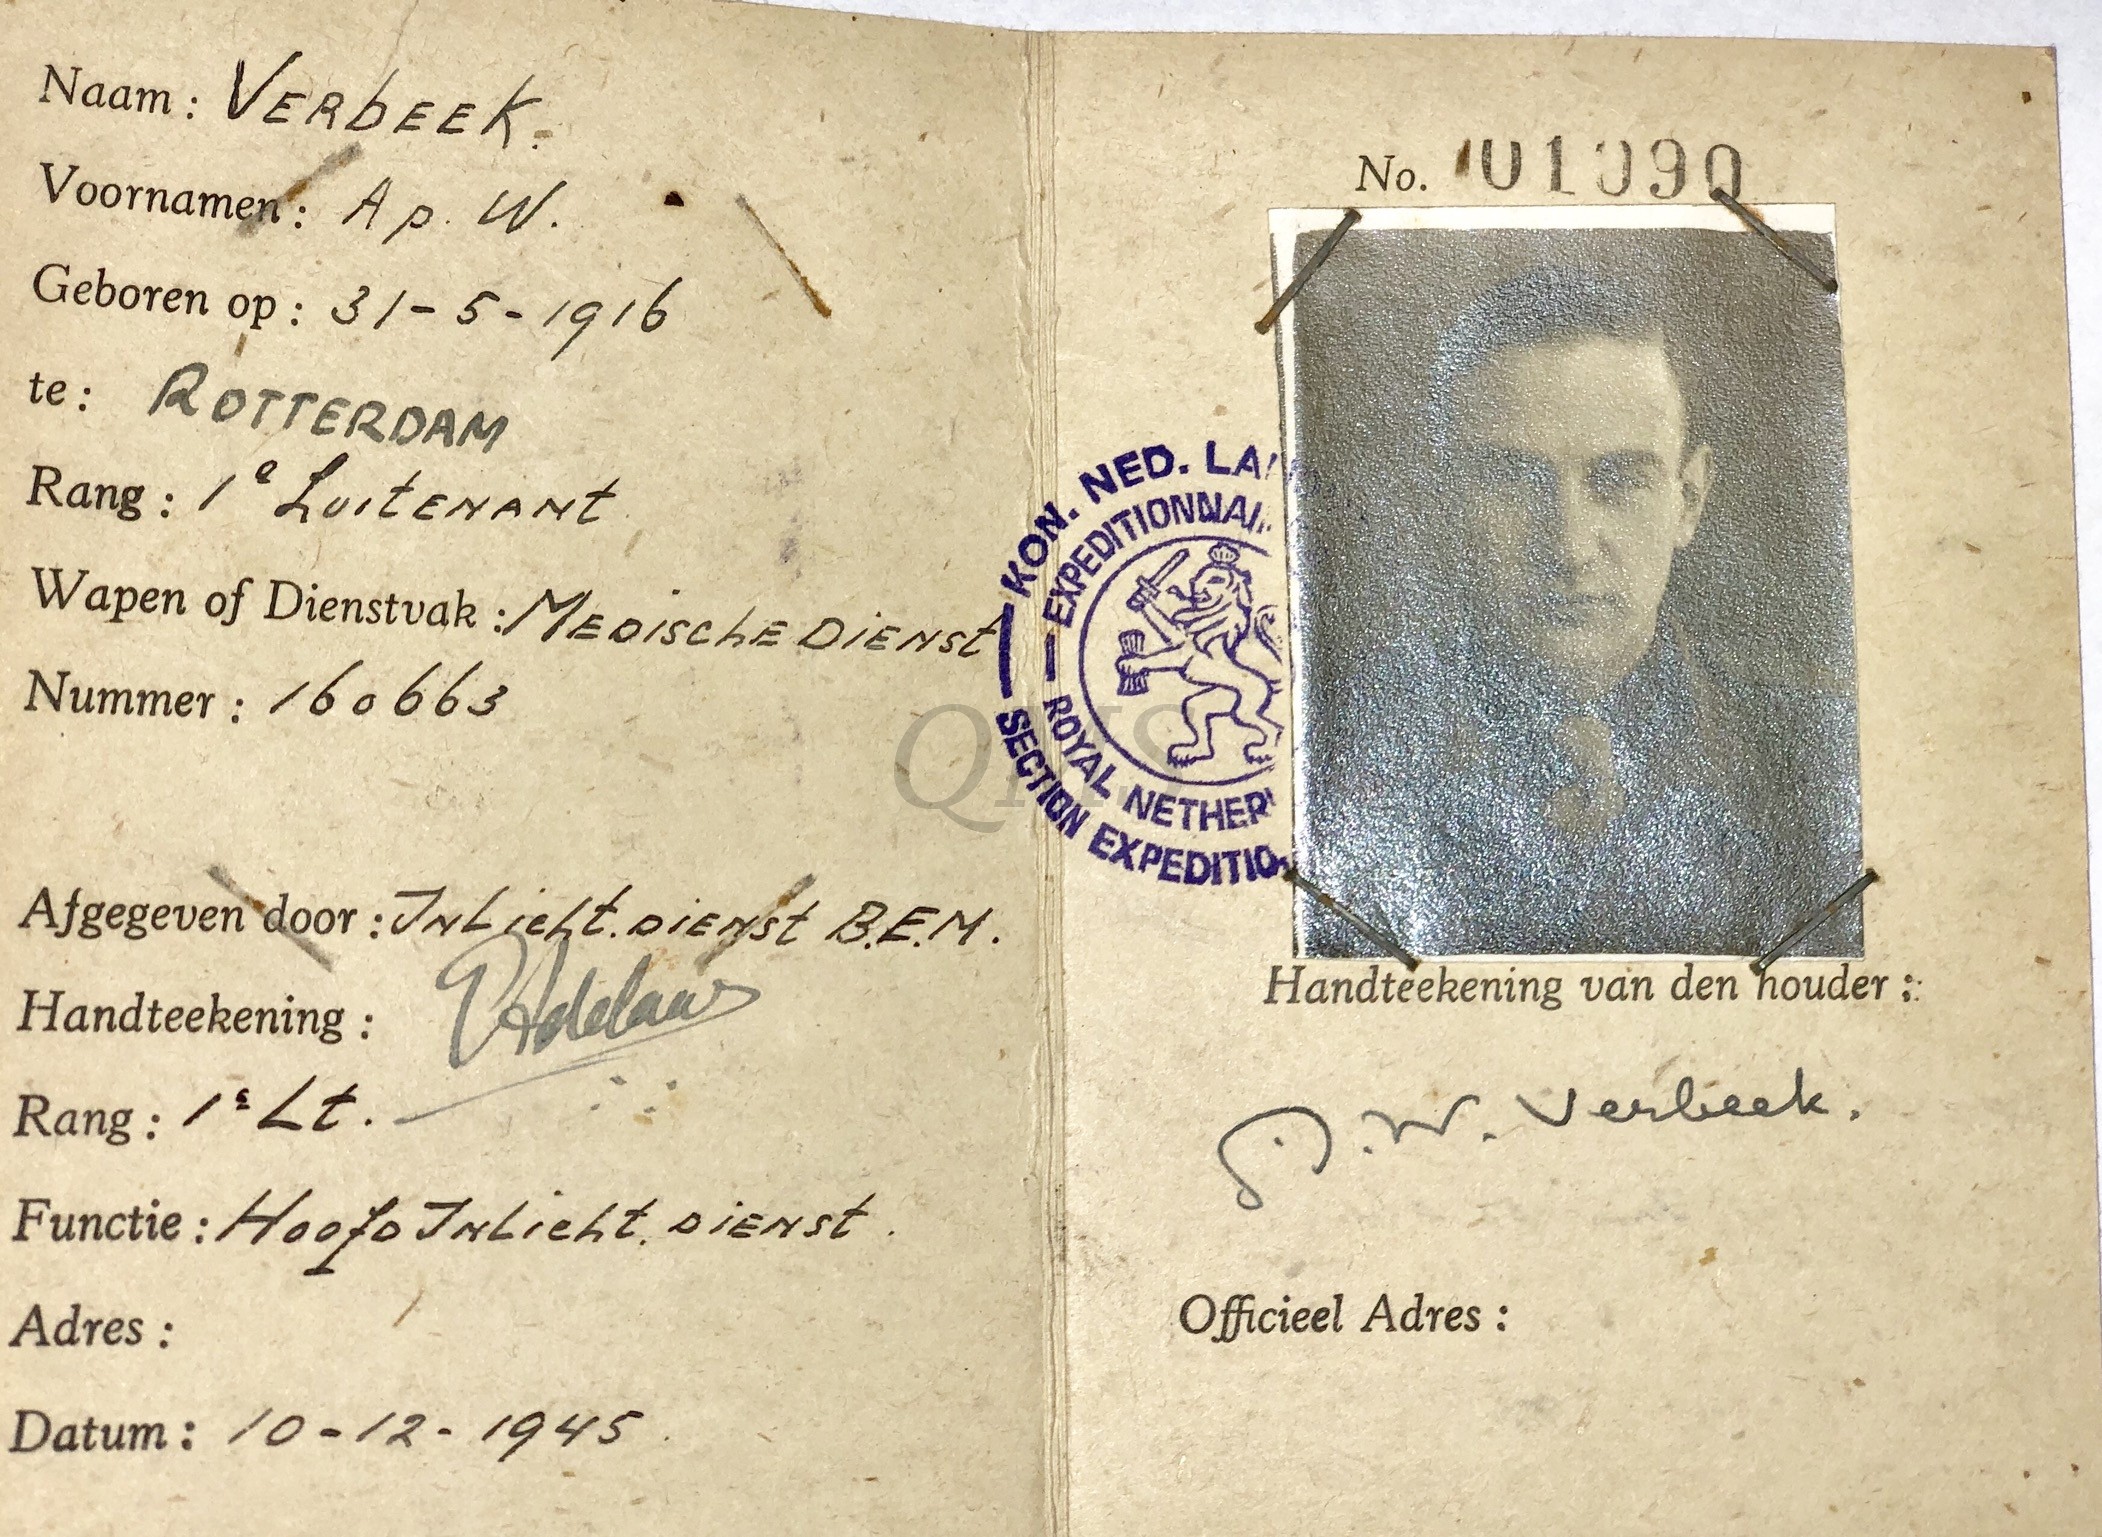 Naam: VERBEEK.
Voornamen: A p. W.
Geboren op: 31-5-1916
te: ROTTERDAM
Rang: 1e LUITENANT
Wapen of Dienstvak: MEDISCHE DIENST
Nummer: 160663
Afgegeven door: INLICHT. DIENST B.E.M.
Handteekening:
Rang: 1e Lt.
Functie: HOOFD INLICHT. DIENST.
Adres:
Datum: 10-12-1945
No. 01090
KON. NED. LA
EXPEDITIONNAI
ROYAL NETHER
SECTION EXPEDITIO
Handteekening van den houder:
W. Verbeek.
Officieel Adres: